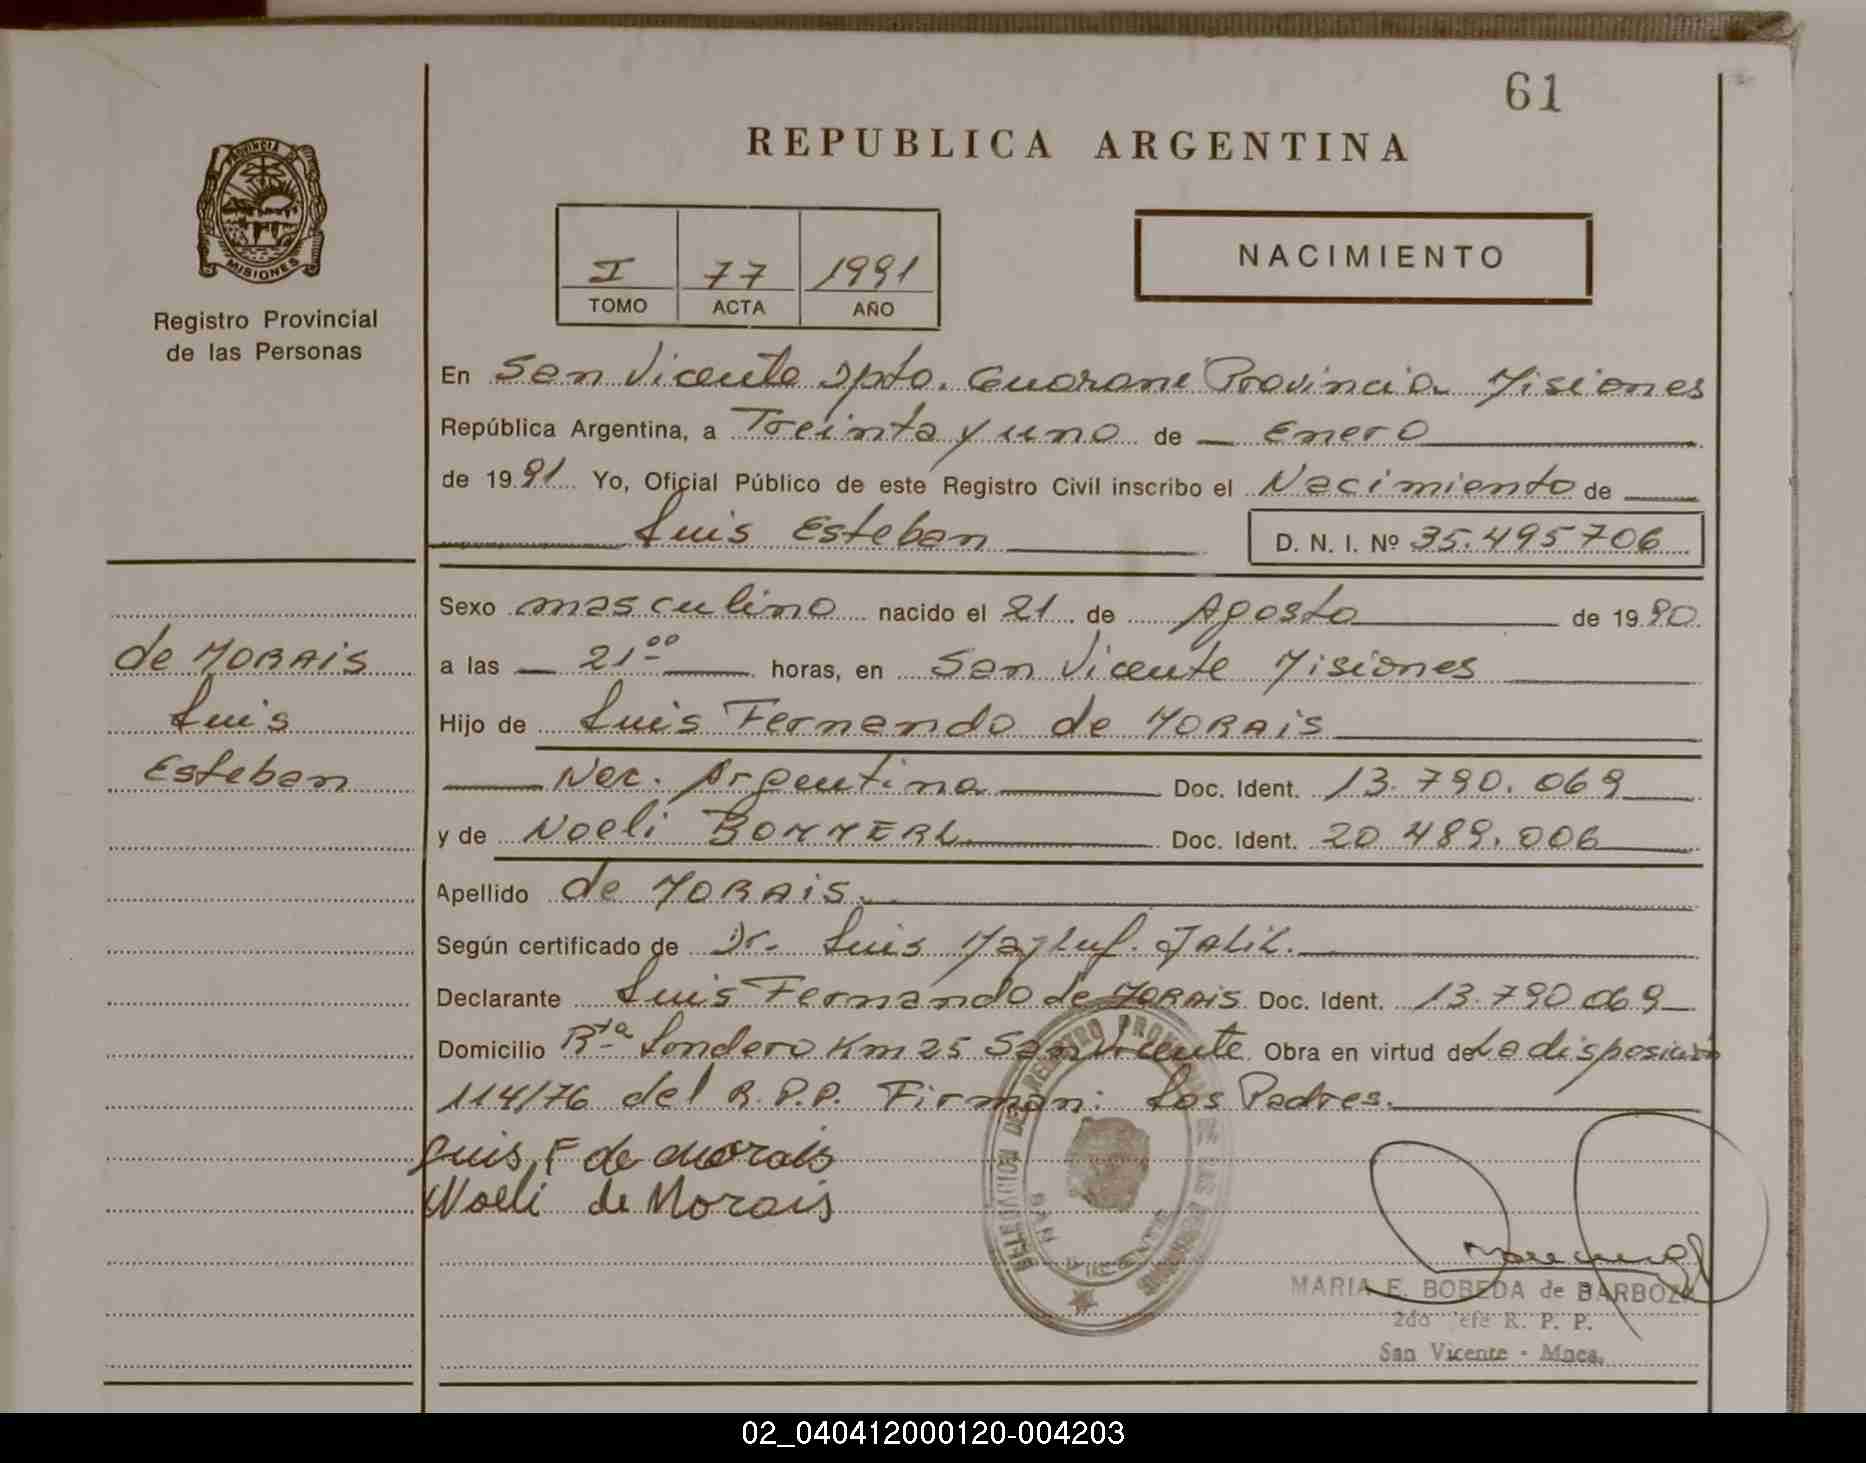 61
REPUBLICA ARGENTINA
PROVINCIA DE
MISIONES
Registro Provincial
de las Personas
I 77 1991
TOMO ACTA AÑO
NACIMIENTO
En San Vicente Dpto. Guarani Provincia Misiones
República Argentina, a Treinta y uno de Enero
de 1991 Yo, Oficial Público de este Registro Civil inscribo el Nacimiento de
Luis Esteban D. N. I. Nº 35.495706
Sexo masculino nacido el 21 de Agosto de 1990
de MORAIS
Luis
Esteban
a las 21 00 horas, en San Vicente Misiones
Hijo de Luis Fernando de MORAIS
Nac. Argentina Doc. Ident. 13.790.069
y de Noeli BOMMERL Doc. Ident. 20 489.006
Apellido de MORAIS
Según certificado de Dr. Luis JALIL.
Declarante Luis Fernando de MORAIS Doc. Ident. 13.790 069
Domicilio Rta Londero Km 25 San Vicente Obra en virtud de La disposición
114/76 del R.P.P. Firman: Los Padres.
Luis F de Morais
Noeli de Morais
DELEGACION DEL REGISTRO PROVINCIAL DE LAS PERSONAS
SAN VICENTE
MARIA E. BOBEDA de BARBOZA
2do Jefe R. P. P.
San Vicente - Mnes.
02_040412000120-004203